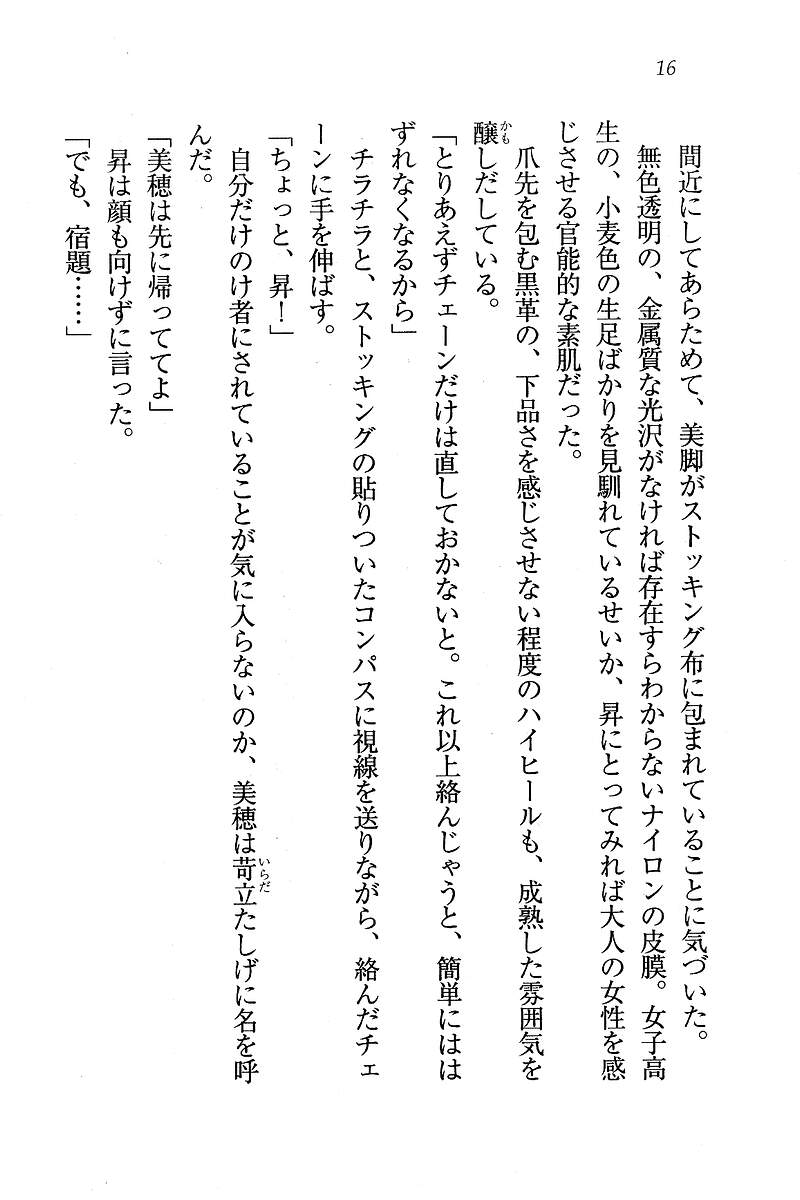 16
間近にしてあらためて、美脚がストッキング布に包まれていることに気づいた。
無色透明の、金属質な光沢がなければ存在すらわからないナイロンの皮膜。女子高
生の、小麦色の生足ばかりを見馴れているせいか、昇にとってみれば大人の女性を感
じさせる官能的な素肌だった。
爪先を包む黒革の、下品さを感じさせない程度のハイヒールも、成熟した雰囲気を
醸かもしだしている。
「とりあえずチェーンだけは直しておかないと。これ以上絡んじゃうと、簡単にはは
ずれなくなるから」
チラチラと、ストッキングの貼りついたコンパスに視線を送りながら、絡んだチェ
ーンに手を伸ばす。
「ちょっと、昇！」
自分だけのけ者にされていることが気に入らないのか、美穂は苛立いらだたしげに名を呼
んだ。
「美穂は先に帰っててよ」
昇は顔も向けずに言った。
「でも、宿題……」